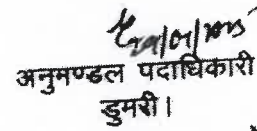 अनुमण्डल पदाधिकारी
डुमरी।